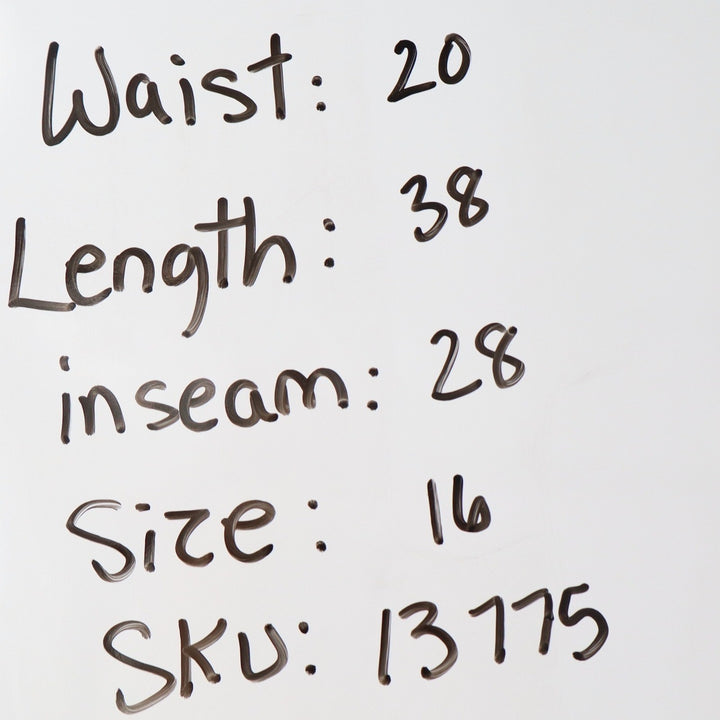 Waist: 20
Length: 38
inseam: 28
Size: 16
SKU: 13775